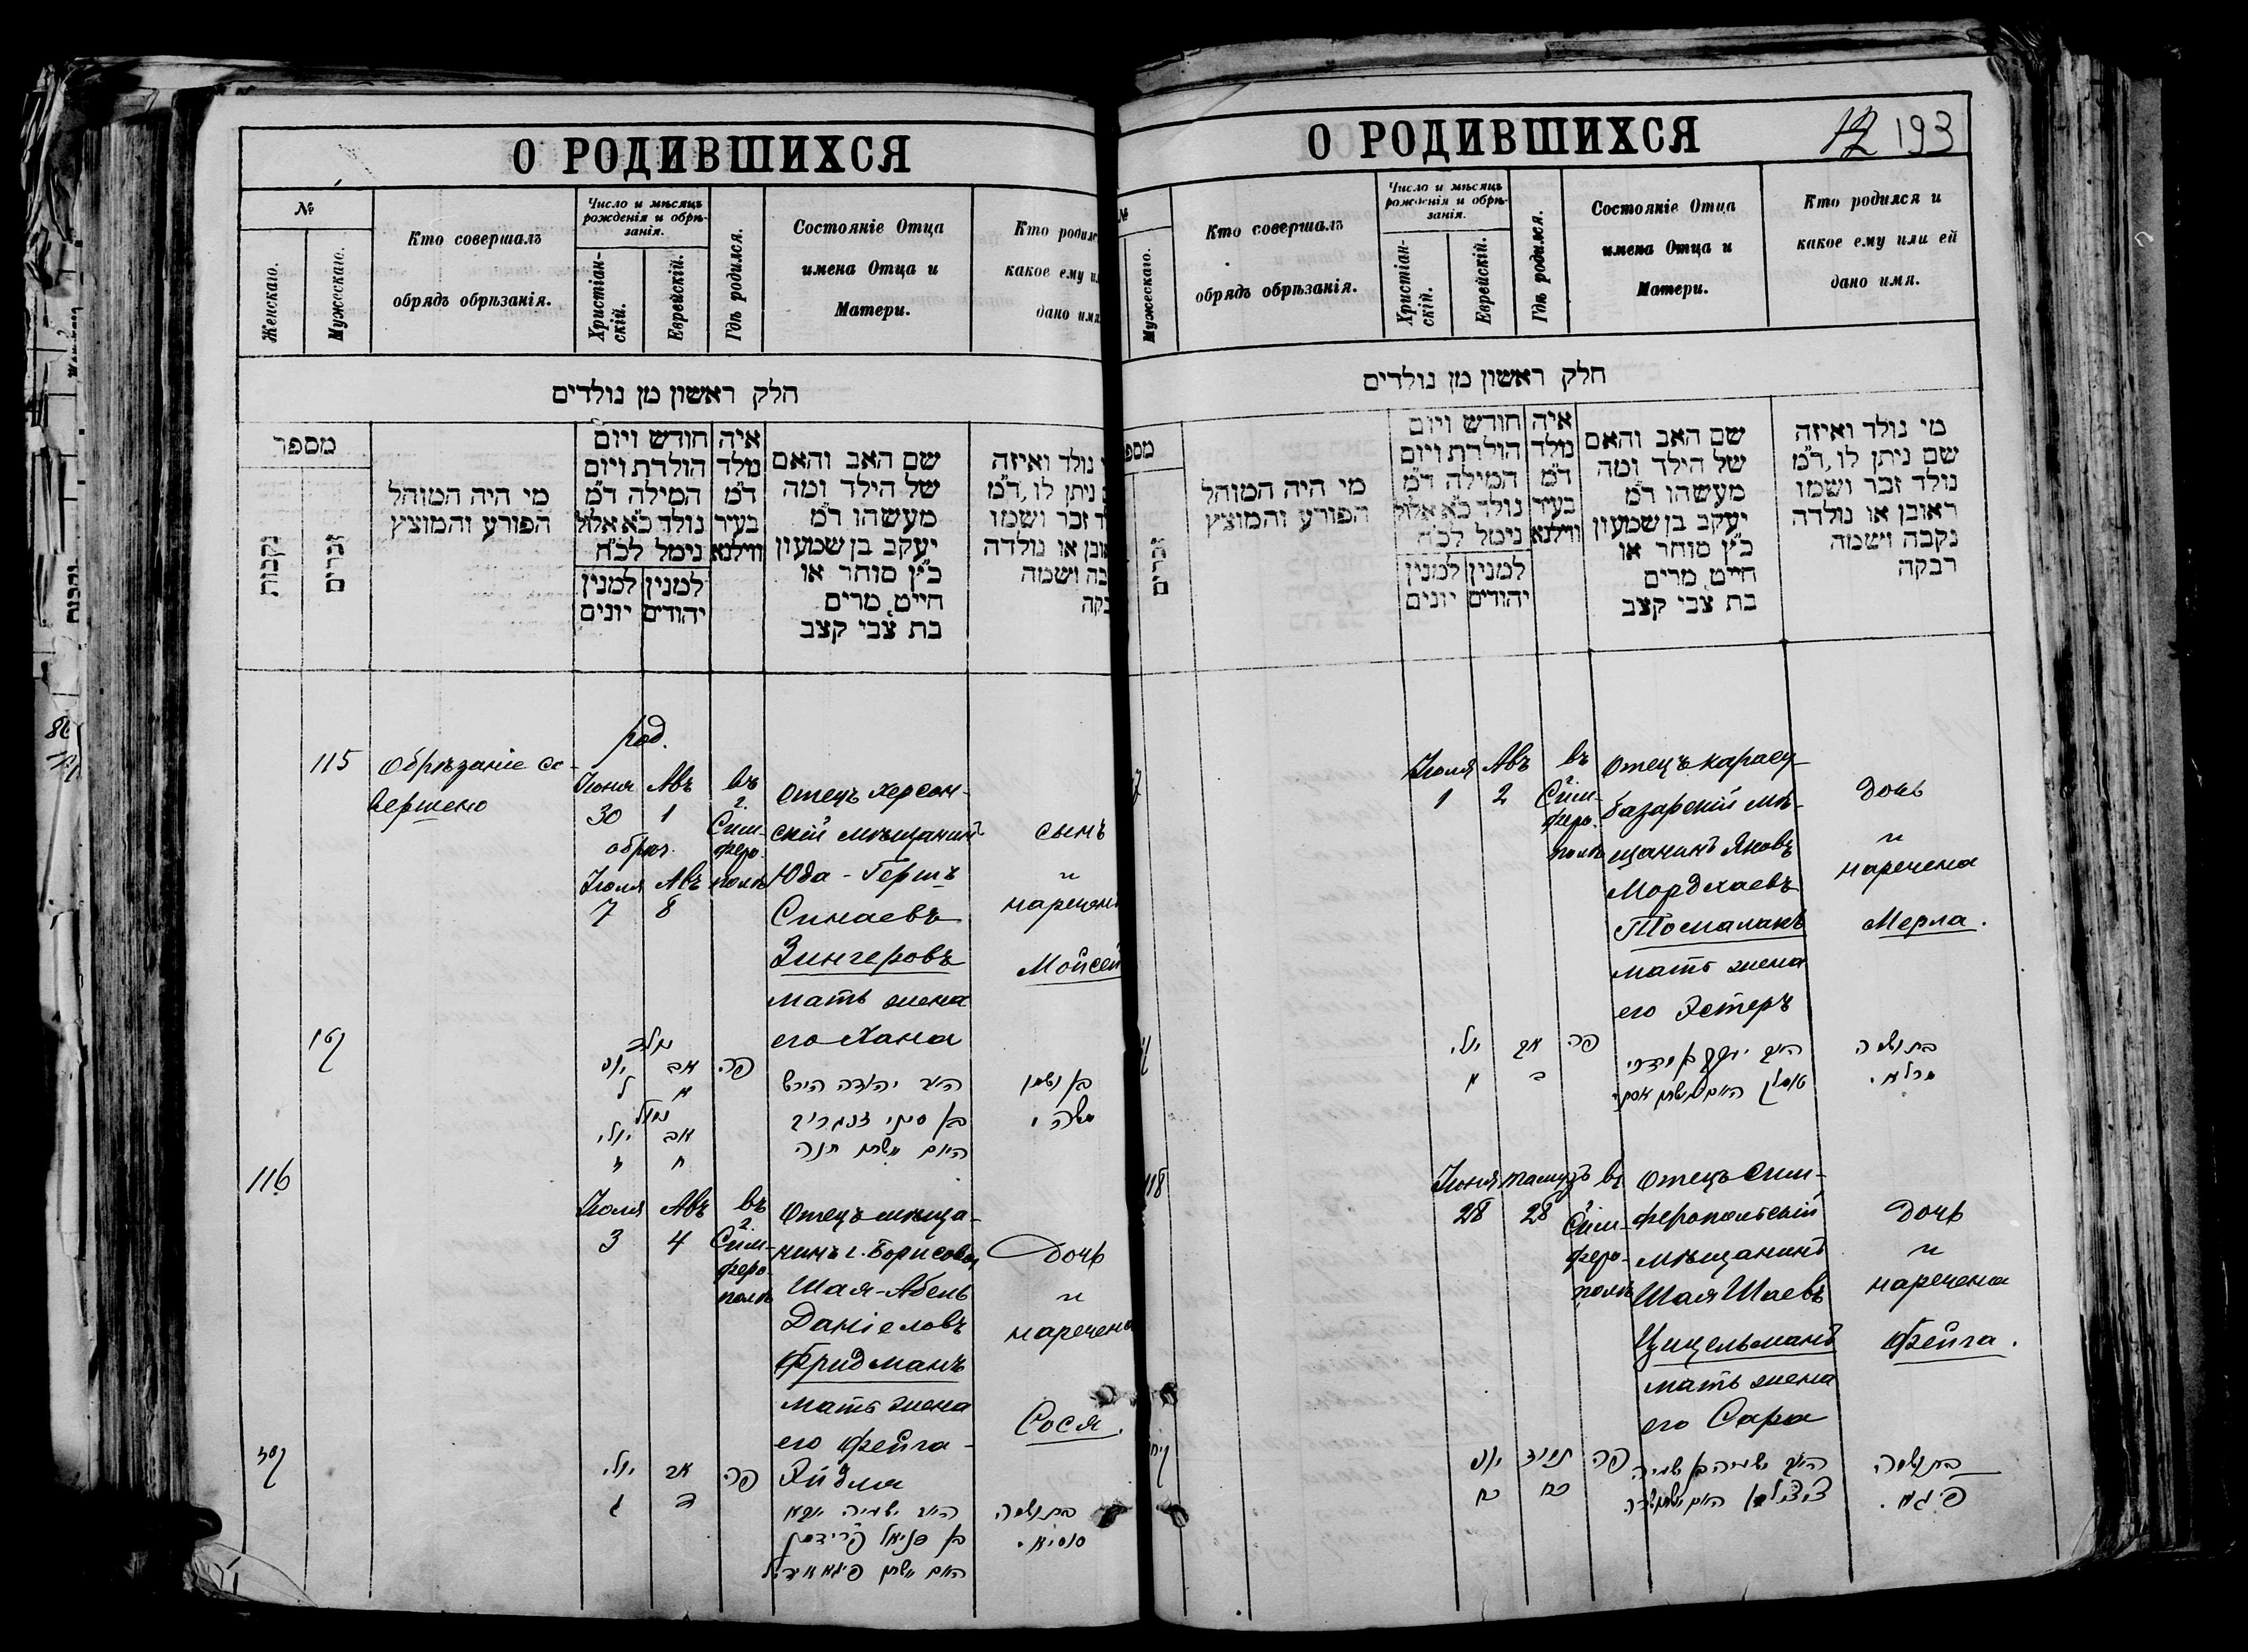 О РОДИВШИХСЯ
№
Женскаго.
Мужескаго.
Кто совершалъ
обрядъ обрѣзанія.
Число и мѣсяцъ
рожденія и обрѣ-
занія.
Христіан-
скій.
Еврейскій.
Гдѣ родился.
Состояніе Отца
имена Отца и
Матери.
Кто
какое ему
дано
חלק ראשון מן נולדים
מספר
נקבות
זכרים
מי היה המוהל
הפורע והמוצץ
חודש ויום
הולדת ויום
המילה ד״מ
נולד כ״א אלול
נימל לכ״ח
למנין
יונים
למנין
יהודים
איה
נולד
ד״מ
בעיר
ווילנא
שם האב והאם
של הילד ומה
מעשהו ד״מ
יעקב בן שמעון
כ״ץ סוחר או
חייט, מרים
בת צבי קצב
נולד ואיזה
ניתן לו, ד״מ
זכר ושמו
או נולדה
ושמה
115
Обрѣзаніе со-
вершено
род.
Іюня Авъ
30 1
обрѣз.
Іюля Авъ
7 8
въ
г.
Сим-
феро-
полѣ
Отецъ херсон-
скій мѣщанинъ
Юда-Гершъ
Синаевъ
Зингеровъ
мать жена
его Хана
сынъ
и
нареченъ
Мойсей
פה
היא יהודה הירש
האם אשתו חנה
בן ושמו
משה
116
Іюля Авъ
3 4
въ
г.
Сим-
феро-
полѣ
Отецъ мѣща-
нинъ г. Борисова
Шая-Абель
Даніеловъ
Фридманъ
мать жена
его Фейга-
Эйдля
дочь
и
наречена
Сося.
יולי אב פה
ג ד
בת ושמה
סוסיא.
О РОДИВШИХСЯ
193
№
Мужескаго.
Кто совершалъ
обрядъ обрѣзанія.
Число и мѣсяцъ
рожденія и обрѣ-
занія.
Христіан-
скій.
Еврейскій.
Гдѣ родился.
Состояніе Отца
имена Отца и
Матери.
Кто родился и
какое ему или ей
дано имя.
חלק ראשון מן נולדים
זכרים
מי היה המוהל
הפורע והמוצץ
חודש ויום
הולדת ויום
המילה ד״מ
נולד כ״א אלול
נימל לכ״ח
למנין
יונים
למנין
יהודים
איה
נולד
ד״מ
בעיר
ווילנא
שם האב והאם
של הילד ומה
מעשהו ד״מ
יעקב בן שמעון
כ״ץ סוחר או
חייט, מרים
בת צבי קצב
מי נולד ואיזה
שם ניתן לו, ד״מ
נולד זכר ושמו
ראובן או נולדה
נקבה ושמה
רבקה
7
Іюля Авъ
1 2
въ
г.
Сим-
феро-
полѣ
Отецъ карасу-
базарскій мѣ-
щанинъ Яковъ
Мордхаевъ
Томалакъ
мать жена
его Эстеръ
дочь
и
наречена
Мерла.
יולי אב פה
א ב
בת ושמה
מרלא.
118
Іюня тамузъ
28 28
въ
г.
Сим-
феро-
полѣ
Отецъ сим-
феропольскій
мѣщанинъ
Шая Шаевъ
Цицельманъ
мать жена
его Сара
дочь
и
наречена
Фейга.
יוני תמוז פה
כח כח
בת ושמה
פיגא.